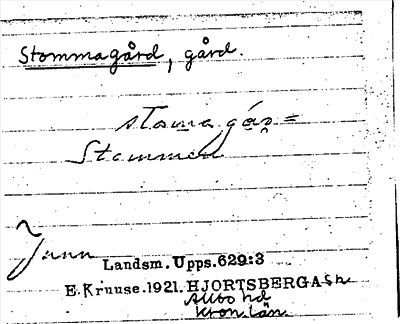 Stommagård, gård.
stoma gáṇ =
Stommen
Landsm. Upps. 629:3
E. Kruuse. 1921. HJORTSBERGA sn
Allbo hd
Kron. län.